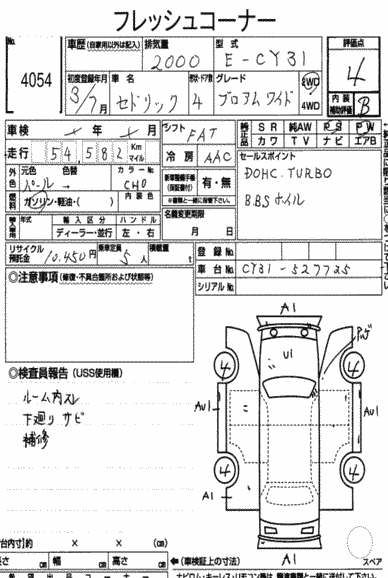 フレッシュコーナー
No.
4054
車歴 (自家用以外は記入)
排気量
2000
型式
E-CY31
評価点
4
初度登録年月
3/7月
車名
セドリック
ドア
4
グレード
ブロアム ワイド
2WD
4WD
内装
補助評価
B
車検 年 月
シフト
FAT
純正 SR 純AW PS PW
装備 カワ TV ナビ エアB
走行 54,582 Km
マイル
冷房
AAC
セールスポイント
DOHC.TURBO
B.BSホイル
外色
元色
パール
色替
→
カラーNo
CH0
燃料 ガソリン・軽油・( )
内装色
新車整備手帳
(保証書付)
有・無
年式
輸入区分
ディーラー・並行
ハンドル
左・右
名義変更期限
月 日
リサイクル
預託金
10,450円
乗車定員
5人
積載量
t
登録No.
車台No. CY31-527725
シリアルNo.
◎注意事項 (修復・不具合箇所および状態等)
◎検査員報告 (USS使用欄)
ルーム内スレ
下廻り サビ
補修
A1
U1
4
4
AU1
AU1
4
4
A1
A1
スペア
台内寸)約 × × cm
長さ cm
幅 cm
高さ cm
←(車検証上の寸法)